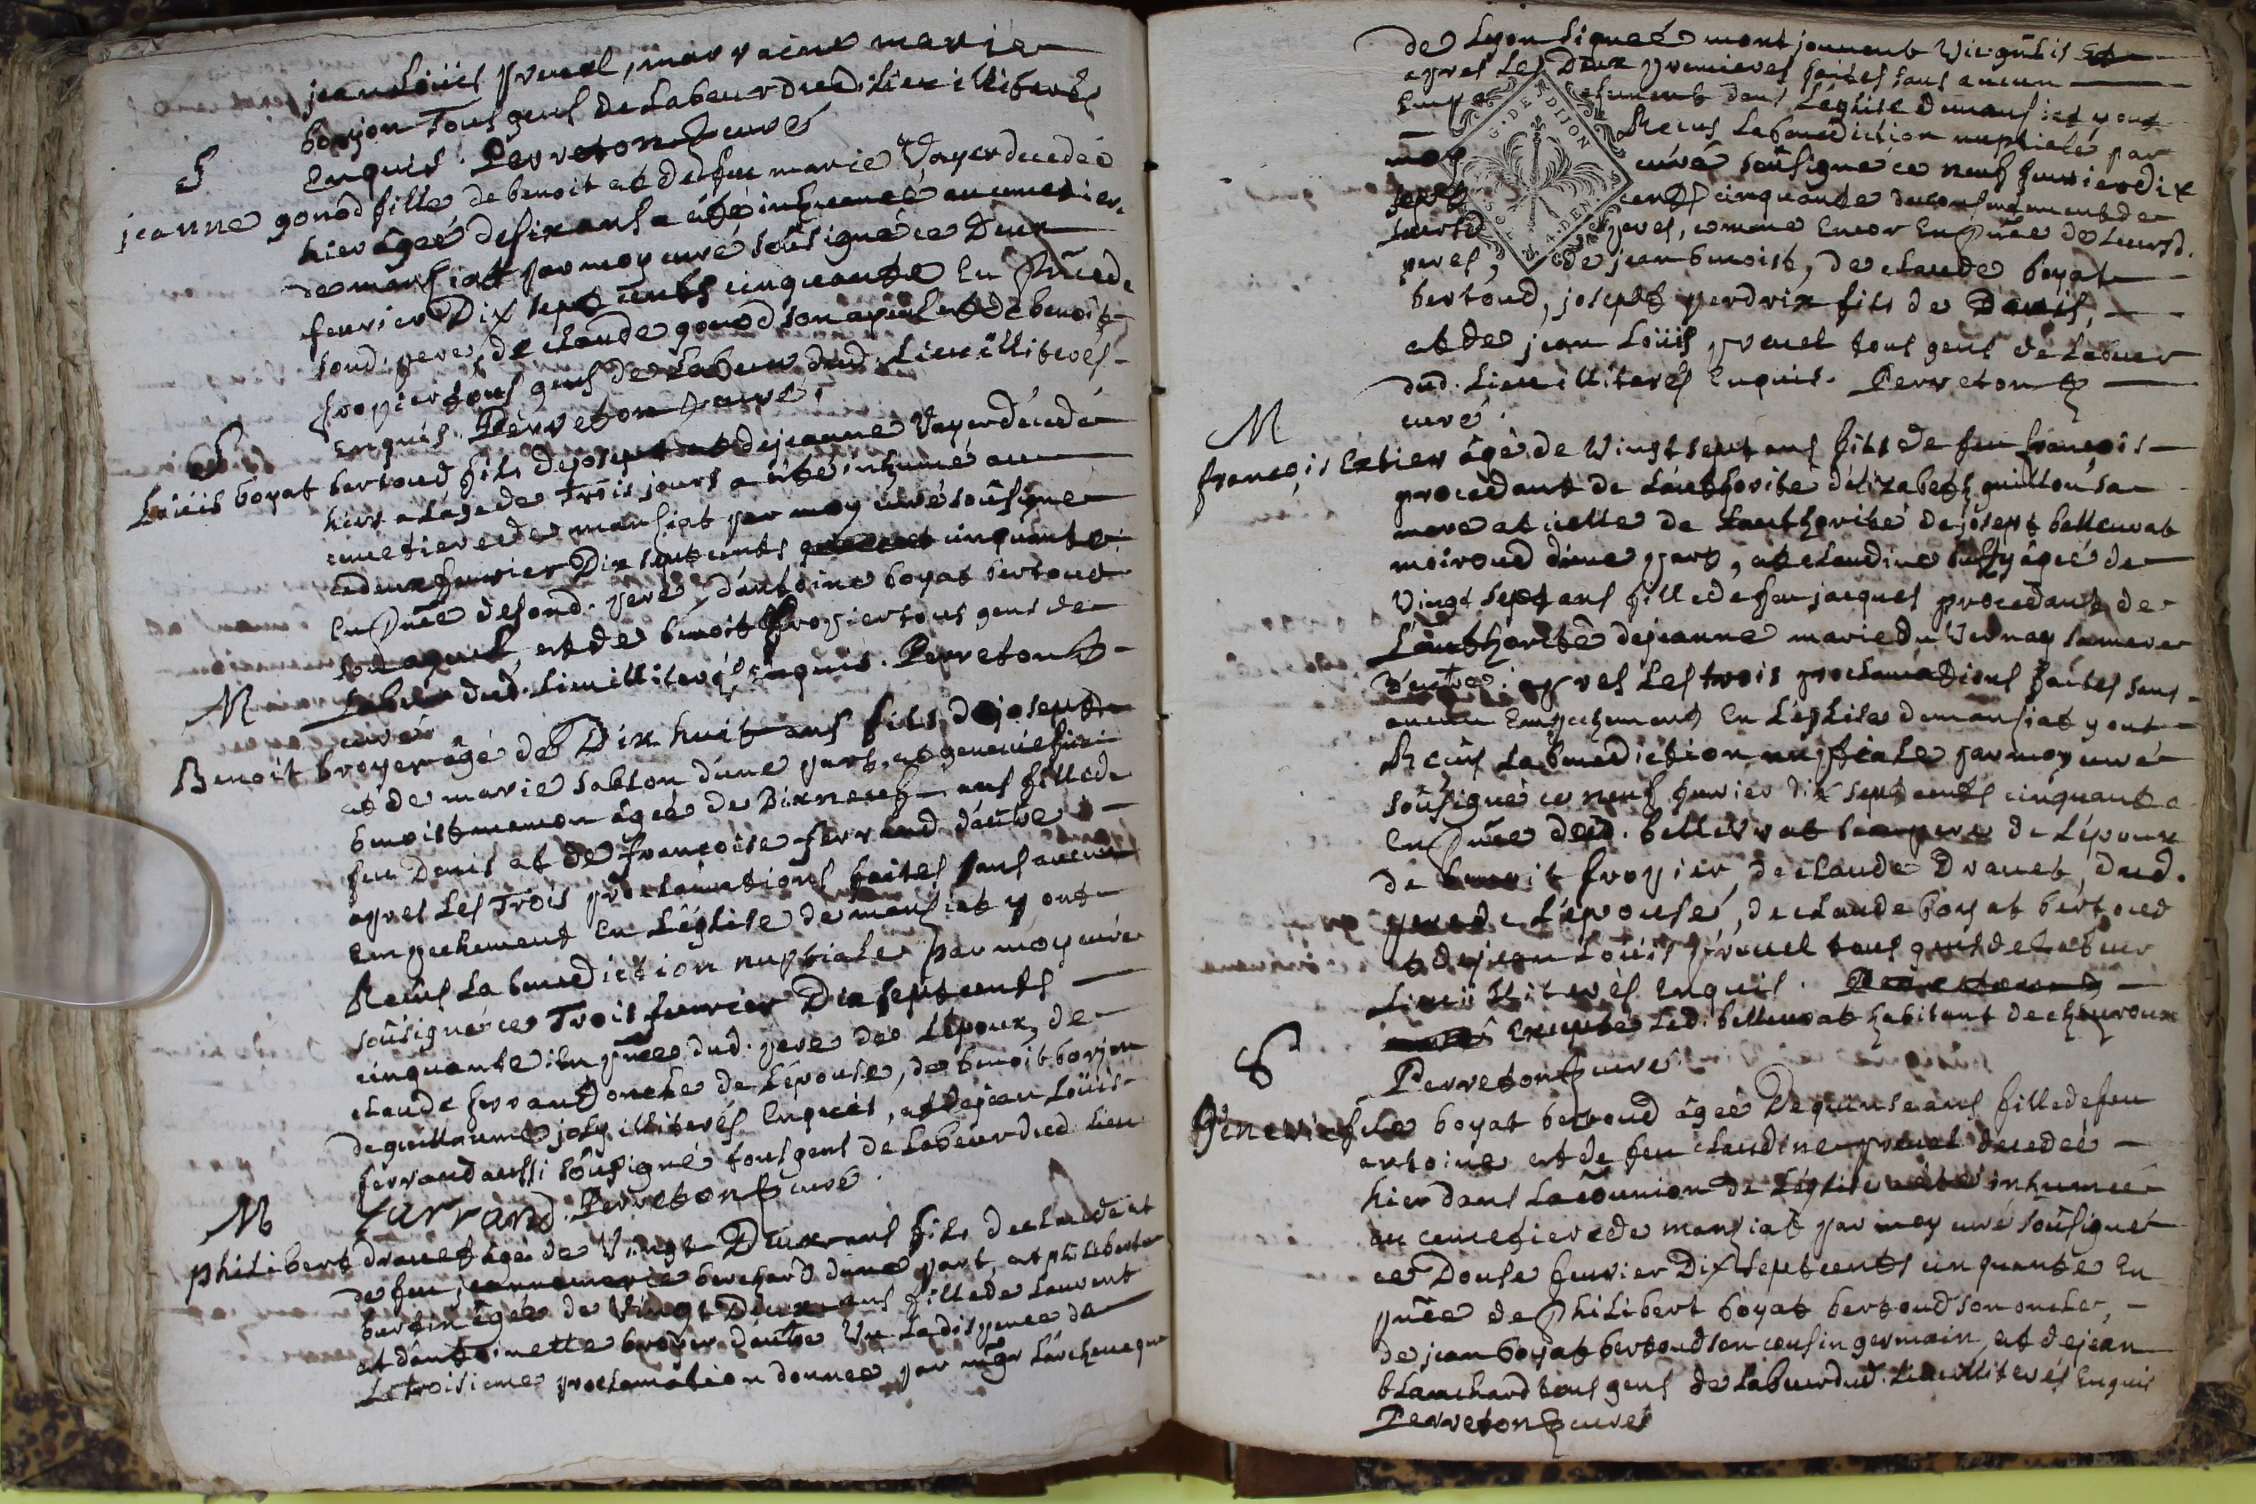 jean Loüis pruel, marraine marie
boyon Tous gens de Labeur dud. Lieu illiterés
Enquis. Perreton curé
S
jeanne gonod fille de benoit et de feu marie Vayer decedée
hier âgée de six ans a été inhumée au cimetier
de mansiat par moy curé soûsigné ce Deux
feurier Dix sept cents cinquante En pñce de
sond. pere, de claude gonod son ayeul et de benoit
fropier tous gens de Labeur dud. Lieu illiterés
Enquis. Perreton curé
S
Loüis boyat bertoud fils de joseph et de jeanne Vayer décédé
hier a Lage de Trois jours a été inhumé au
cimetiere de mansiat par moy curé soûsigné
ce deux feurier Dix sept cents cinquante
En pñce de sond. pere, d'antoine boyat bertoud
son ayeul, et de benoit fropier tous gens de
Labeur dud. Lieu illiterés Enquis. Perreton
curé
M
Benoit broyer âgé de Dix huit ans fils de joseph
et de marie sablon d'une part, et geneviefve
benoist manon âgée de Dix neuf ans fille de
feu Denis et de francoise ferrand d'autre
apres Les Trois proclamations faites sans aucun
Empechement En L'église de mansiat y ont
Recûs La benediction nuptiale par moy curé
soûsigné ce Trois feurier Dix sept cents
cinquante En pñce dud. pere de L'Epoux, de
claude ferrand oncle de L'épouse, de benoit boyon
de guillaume joly illiterés Enquis, et de jean Loüis
ferrand aussi soûsigné tous gens de Labeur dud. Lieu
farrand. Perreton curé.
M
philibert drauet âgé de Vingt Deux ans fils de claude et
de feu jeanne marie berchard d'une part, et philiberte
bertin âgée de Vingt Deux ans fille de Laurent
et d'antoinette broyer d'autre Vu La dispence de
La troisieme proclamation donnee par mgr L'archeueque
de Lyon signée montjouuent Vic. gñl. Et
apres Les Deux premieres faites sans aucun
Empechement dans L'église de mansiat y ont
Recus La benediction nuptiale par
moy curé soûsigné ce neuf feurier dix
sept cents cinquante du consentement de
Leurs d. peres, comme Encor En pñce de Leurs d.
peres, de jean benoist, de claude boyat
bertoud, joseph perdrix fils de Denis,
et de jean Loüis pruel tous gens de Labeur
dud. Lieu illiterés Enquis. Perreton
curé.
M
francois Extier âgé de Vingt sept ans fils de feu francois
procedant de L'authorité d'elizabeth guillon sa
mere et celle de L'authorité de joseph belleurat
moiroud d'une part, et claudine âgée de
Vingt sept ans fille de feu jacques procedant de
L'authorité de jeanne marie du Vernay sa mere
d'autre. apres Les trois proclamations faites sans
aucun Empechement En L'église de mansiat y ont
Recûs La benediction nuptiale par moy curé
soûsigné ce neuf feurier dix sept cents cinquante
En pñce dud. belleurat pere de L'époux
de benoit fropier, de claude Drauet, dud.
pere de L'épouse, de claude boyat bertoud
et de jean Loüis pruel tous gens de Labeur
Lieu illiterés Enquis.
Excepté Led. belleurat habitant de cheuroux
Perreton curé.
S
Genevieſve boyat bertoud âgée De quinse ans fille de feu
antoine et de feu claudine pruel decedée
hier dans La coũnion de L'église a été inhumée
au cimetiere de mansiat par moy curé soûsigné
ce Douse feurier Dix sept cents cinquante En
pñce de philibert boyat bertoud son oncle,
de jean boyat bertoud son cousin germain, et de jean
blanchard tous gens de Labeur dud. Lieu illiterés Enquis
Perreton curé
G. DE DIJON